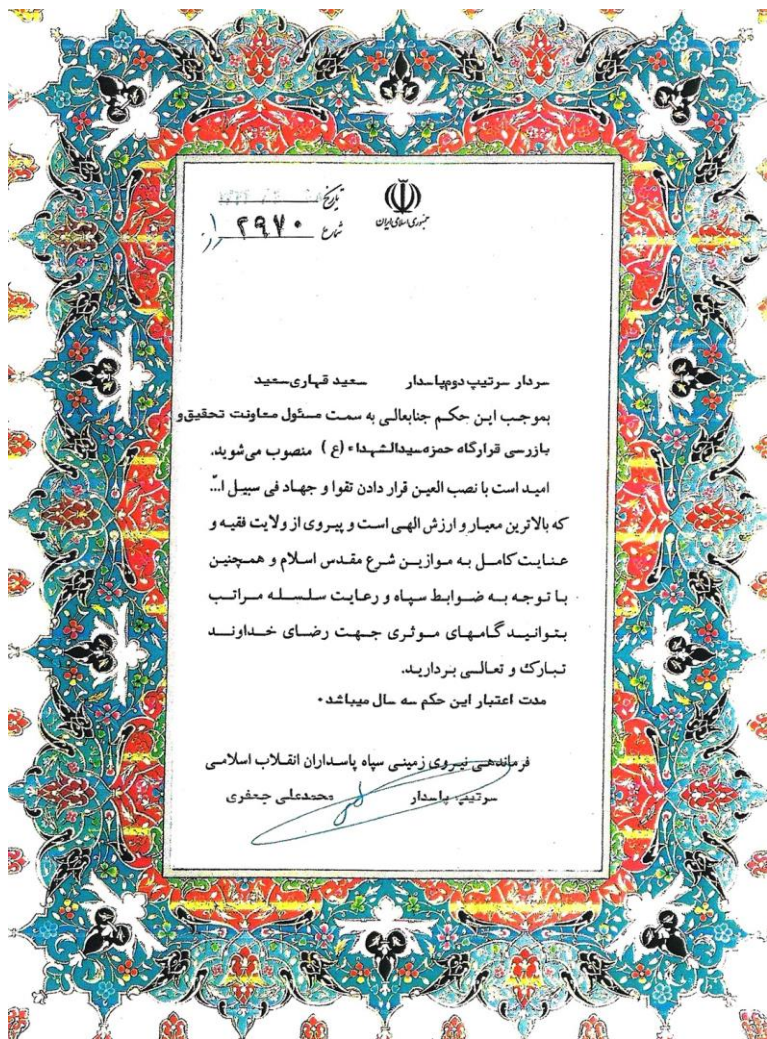 جمهوری اسلامی ایران
تاریخ
شماره ۲۹۷۰
سردار سرتیپ دوم پاسدار سعید قهاری سعید
بموجب این حکم جنابعالی به سمت مسئول معاونت تحقیق و
بازرسی قرارگاه حمزه سیدالشهداء (ع) منصوب می‌شوید.
امید است با نصب العین قرار دادن تقوا و جهاد فی سبیل ا...
که بالاترین معیار و ارزش الهی است و پیروی از ولایت فقیه و
عنایت کامل به موازین شرع مقدس اسلام و همچنین
با توجه به ضوابط سپاه و رعایت سلسله مراتب
بتوانید گامهای موثری جهت رضای خداوند
تبارک و تعالی بردارید.
مدت اعتبار این حکم سه سال میباشد.
فرماندهی نیروی زمینی سپاه پاسداران انقلاب اسلامی
سرتیپ پاسدار محمدعلی جعفری